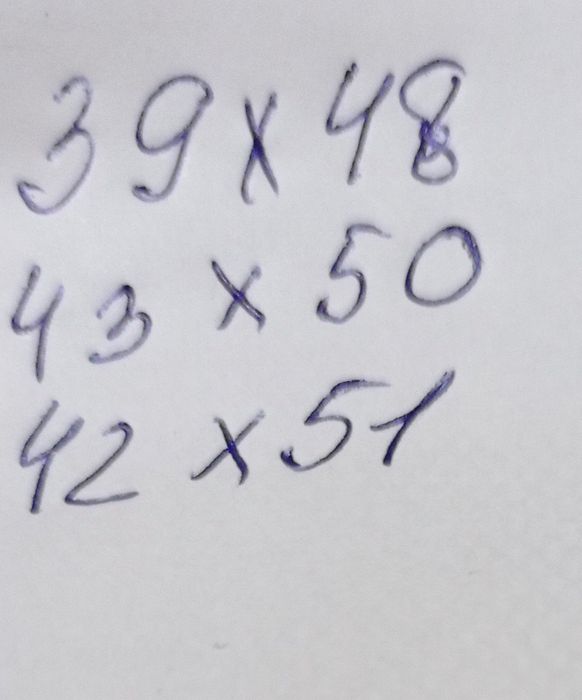 39 x 48
43 x 50
42 x 51